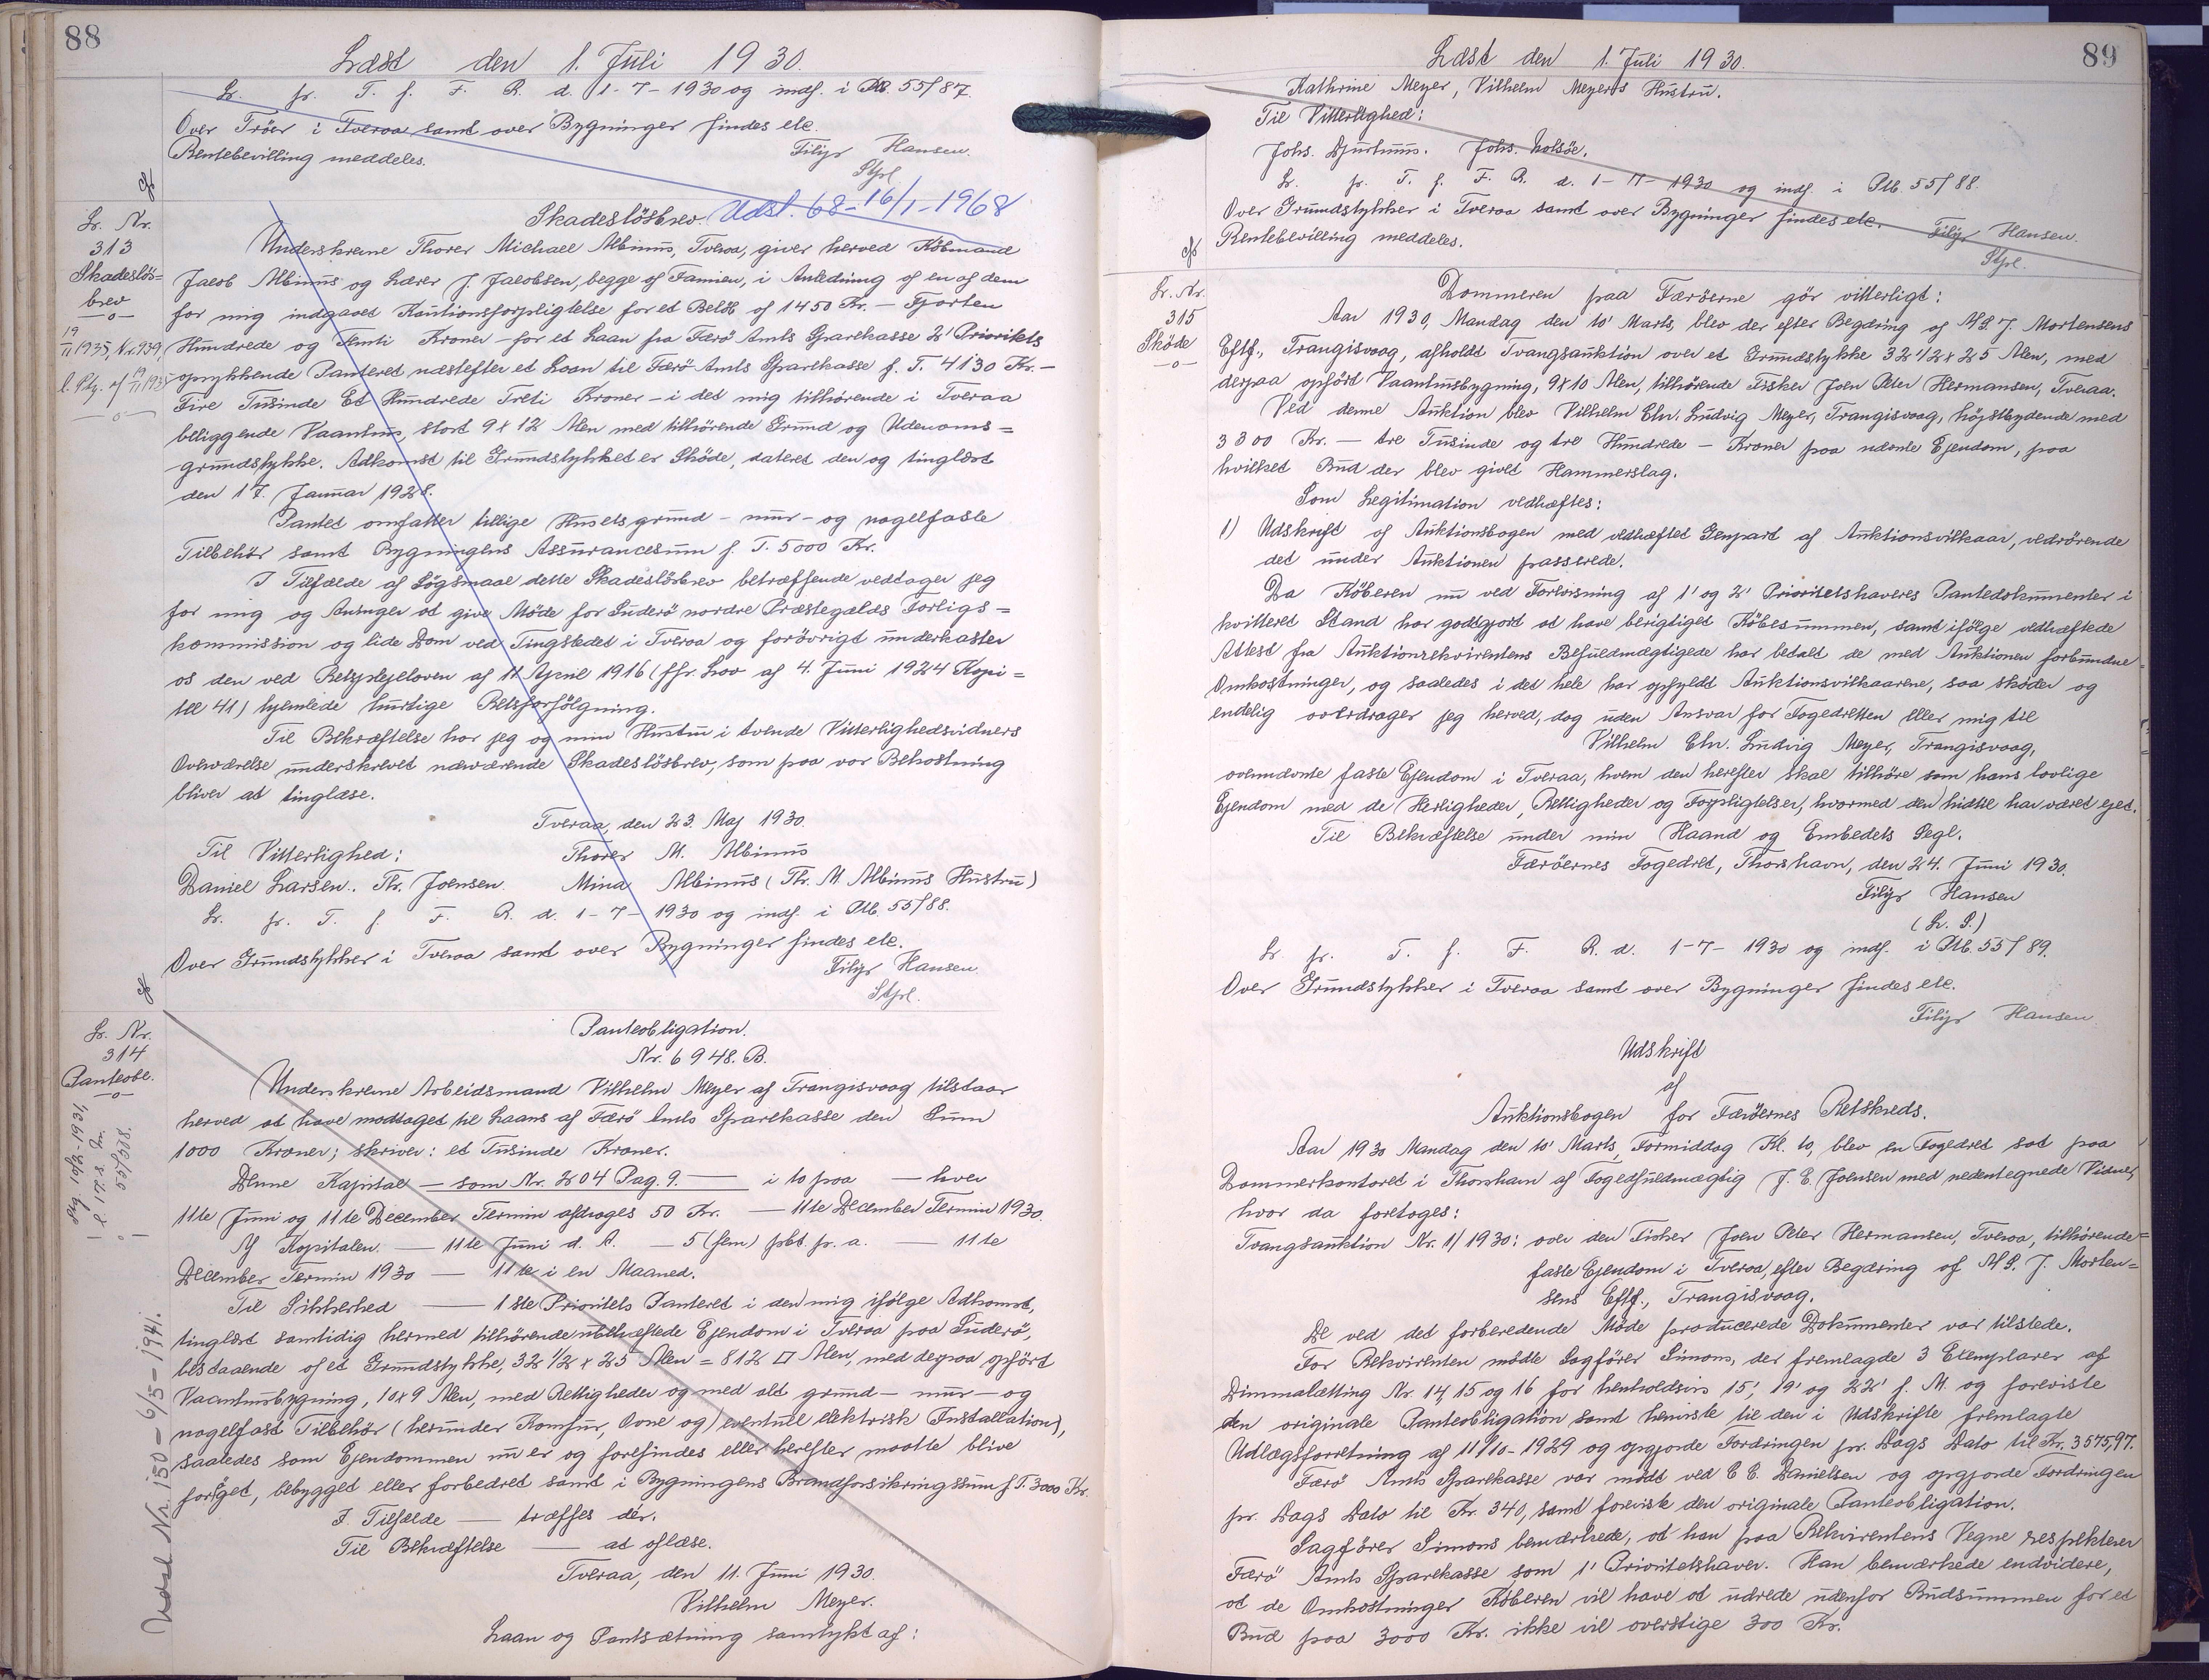 88
Læst den 1. Juli 1930.
Lr. fr. T. f. F. R. d. 1-7-1930 og indf. i Ptb. 55/87.
Over Tröer i Tveraa samt over Bygninger findes etc.
Rentebevilling meddeles.
Filip Hansen.
Stpl.
Udsl. 68-16/1-1968
Lr. Nr.
313
Skadeslös=
brev
—o—
19/11 1935, Nr. 939,
l. Ptg. af 19/11 1935
—o—
Skadeslösbrev.
Underskrevne Thorer Michael Albinus, Tveraa, giver herved Købmand
Jacob Albinus og Lærer J. Jacobsen, begge af Famien, i Anledning af en af dem
for mig indgaaet Kautionsforpligtelse for et Beløb af 1450 Kr. — Fjorten
Hundrede og Femti Kroner — for et Laan fra Færö Amts Sparekasse 2' Prioritets
oprykkende Panteret næstefter et Laan til Færö Amts Sparekasse f. T. 4130 Kr. —
Fire Tusinde Et Hundrede Treti Kroner — i det mig tilhørende i Tveraa
beliggende Vaanhus, stort 9 x 12 Alen med tilhörende Grund og Udenoms=
grundstykke. Adkomst til Grundstykket er Skøde, dateret den og tinglæst
den 17. Januar 1928.
Pantet omfatter tillige Husets grund- mur- og nagelfaste
Tilbehör samt Bygningens Assurancesum f. T. 5000 Kr.
I Tilfælde af Søgsmaal dette Skadeslösbrev betræffende vedtager jeg
for mig og Arvinger at give Møde for Suderö nordre Præstegælds Forligs=
kommission og lide Dom ved Tingstedet i Tveraa og forövrigt underkaster
os den ved Retsplejeloven af 11 April 1916 (jfr. Lov af 4. Juni 1924 Kapi=
tel 41) hjemlede hurtige Retsforfölgning.
Til Bekræftelse har jeg og min Hustru i tvende Vitterlighedsvidners
Overværelse underskrevet nærværende Skadeslösbrev, som paa vor Bekostning
bliver at tinglæse.
Tveraa, den 23. Maj 1930.
Til Vitterlighed: Thorer M. Albinus
Daniel Larsen. Th. Joensen. Mina Albinus (Th. M. Albinus Hustru)
Lr. fr. T. f. F. R. d. 1-7-1930 og indf. i Ptb. 55/88.
Over Grundstykker i Tveraa samt over Bygninger findes etc.
Filip Hansen.
Stpl.
Lr. Nr.
314
Panteobl.
—o—
Udsl. Nr. 150 - 6/5 - 1941.
Panteobligation.
Nr. 6948. B.
Underskrevne Arbeidsmand Vilhelm Meyer af Trangisvaag tilstaar
herved at have modtaget til Laans af Færö Amts Sparekasse den Sum
1000 Kroner; skriver: et Tusinde Kroner.
Denne Kapital — som Nr. 204 Pag. 9. — i to paa — hver
11te Juni og 11te December Termin afdrages 50 Kr. — 11te December Termin 1930.
Af Kapitalen. — 11te Juni d. A. — 5 (fem) pct. pr. a. — 11te
December Termin 1930 — 11te i en Maaned.
Til Sikkerhed — 1ste Prioritets Panteret i den mig ifølge Adkomst,
tinglæst samtidig hermed tilhörende ubehæftede Ejendom i Tveraa paa Suderö,
bestaaende af et Grundstykke, 32 1/2 x 25 Alen = 812 □ Alen, med derpaa opfört
Vaanhusbygning, 10x9 Alen, med Rettigheder og med alt grund- mur- og
nagelfast Tilbehör (herunder Komfur, Ovne og) eventuell elektrisk Installation),
saaledes som Ejendommen nu er og forefindes eller herefter maatte blive
forøget, bebygget eller forbedret samt i Bygningens Brandforsikringssum f. T. 3000 Kr.
I Tilfælde — træffes der.
Til Bekræftelse — at aflæse.
Tveraa, den 11. Juni 1930.
Vilhelm Meyer.
Laan og Pantsætning samtykt af:
89
Læst den 1. Juli 1930.
Kathrine Meyer, Vilhelm Meyers Hustru.
Til Vitterlighed:
Johs. Djurhuus. Johs. Holsöe.
Lr. fr. T. f. F. R. d. 1-7-1930 og indf. i Ptb. 55/88.
Over Grundstykker i Tveraa samt over Bygninger findes etc. Filip Hansen.
Rentebevilling meddeles.
Stpl.
Lr. Nr.
315
Sköde
—o—
Dommeren paa Færöerne gör vitterligt:
Aar 1930, Mandag den 10' Marts, blev der efter Begæring af A/S. J. Mortensens
Eftf., Trangisvaag, afholdt Tvangsauktion over et Grundstykke 32 1/2 x 25 Alen, med
derpaa opfört Vaanhusbygning, 9x10 Alen, tilhörende Fisker Joen Peter Hermansen, Tveraa.
Ved denne Auktion blev Vilhelm Chr. Ludvig Meyer, Trangisvaag, höjstbydende med
3300 Kr. — tre Tusinde og tre Hundrede — Kroner paa nævnte Ejendom, paa
hvilket Bud der blev givet Hammerslag.
Som Legitimation vedhæftes:
1) Udskrift af Auktionsbogen med vedhæftet Genpart af Auktionsvilkaar, vedrörende
det under Auktionen passerede.
Da Köberen nu ved Forevisning af 1' og 2' Prioritetshaveres Pantedokumenter i
kvitteret Stand har godtgjort at have berigtiget Köbesummen, samt ifölge vedhæftede
Attest fra Auktionsrekvirentens Befuldmægtigede har betalt de med Auktionen forbundne
Omkostninger, og saaledes i det hele har opfyldt Auktionsvilkaarene, saa sköder og
endelig overdrager jeg herved, dog uden Ansvar for Fogedretten eller mig til
Vilhelm Chr. Ludvig Meyer, Trangisvaag,
ovennævnte faste Ejendom i Tveraa, hvem den herefter skal tilhöre som hans lovlige
Ejendom med de Herligheder, Rettigheder og Forpligtelser, hvormed den hidtil har været ejet.
Til Bekræftelse under min Haand og Embedets Segl.
Færöernes Fogedret, Thorshavn, den 24. Juni 1930.
Filip Hansen
(L. S.)
Lr fr. T. f. F. R. d. 1-7-1930 og indf. i Ptb. 55/89.
Over Grundstykker i Tveraa samt over Bygninger findes etc.
Filip Hansen
Udskrift
af
Auktionsbogen for Færöernes Retskreds.
Aar 1930 Mandag den 10' Marts, Formiddag Kl. 10, blev en Fogedret sat paa
Dommerkontoret i Thorshavn af Fogedfuldmægtig J. E. Joensen med nedentegnede Vidner,
hvor da foretoges:
Tvangsauktion Nr. 1/1930: over den Fisker Joen Peter Hermansen, Tveraa, tilhörende=
faste Ejendom i Tveraa, efter Begæring af A/S. J. Morten=
sens Eftf., Trangisvaag.
De ved det forberedende Møde producerede Dokumenter var tilstede.
For Rekvirenten mödte Sagförer Simons, der fremlagde 3 Exemplarer af
Dimmalætting Nr. 14, 15 og 16 for henholdsvis 15', 19' og 22' f. M. og foreviste
den originale Panteobligation samt henviste til den i Udskrifte fremlagte
Udlægsforretning af 11/10-1929 og opgjorde Fordringen pr. Dags Dato til Kr. 3575,97.
Færö Amts Sparekasse var mödt ved C. C. Danielsen og opgjorde Fordringen
pr. Dags Dato til Kr. 340, samt foreviste den originale Panteobligation.
Sagförer Simons bemærkede, at han paa Rekvirentens Vegne respekterer
Færö Amts Sparekasse som 1' Prioritetshaver. Han bemærkede endvidere,
at de Omkostninger Köberen vil have at udrede udenfor Budsummen for et
Bud paa 3000 Kr. ikke vil overstige 300 Kr.